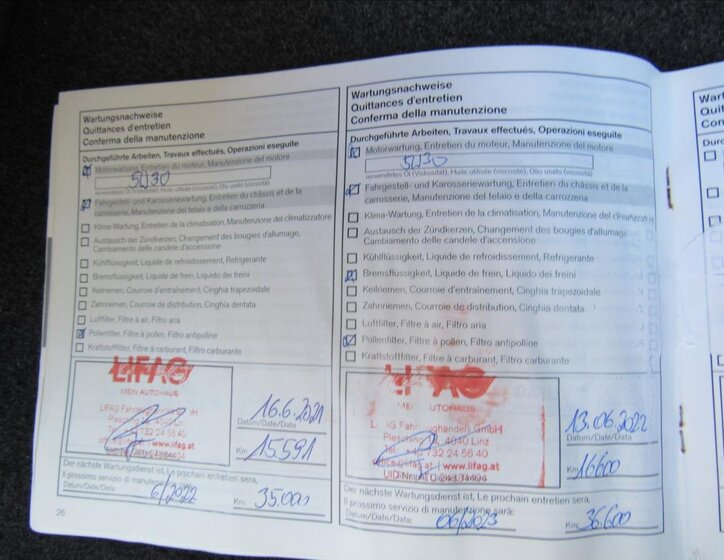 Wartungsnachweise
Quittances d'entretien
Conferma della manutenzione
Durchgeführte Arbeiten, Travaux effectués, Operazioni eseguite
Motorwartung, Entretien du moteur, Manutenzione del motore
5W30
verwendetes Öl (Viskosität), Huile utilisée (viscosité), Olio usato (viscosità)
Fahrgestell- und Karosseriewartung, Entretien du châssis et de la
carrosserie, Manutenzione del telaio e della carrozzeria
Klima-Wartung, Entretien de la climatisation, Manutenzione del climatizzatore
Austausch der Zündkerzen, Changement des bougies d'allumage,
Cambiamento delle candele d'accensione
Kühlflüssigkeit, Liquide de refroidissement, Refrigerante
Bremsflüssigkeit, Liquide de frein, Liquido dei freini
Keilriemen, Courroie d'entraînement, Cinghia trapezoidale
Zahnriemen, Courroie de distribution, Cinghia dentata
Luftfilter, Filtre à air, Filtro aria
Pollenfilter, Filtre à pollen, Filtro antipolline
Kraftstofffilter, Filtre à carburant, Filtro carburante
LIFAG
MEIN AUTOHAUS
LIFAG
4040 Linz
732 24 56 40
www.lifag.at
16.6.2021
Datum/Date/Data:
Km: 15.591
Der nächste Wartungsdienst ist, Le prochain entretien sera,
il prossimo servizio di
Datum/Date/Data: 6/2022 Km: 35.000
26
Wartungsnachweise
Quittances d'entretien
Conferma della manutenzione
Durchgeführte Arbeiten, Travaux effectués, Operazioni eseguite
Motorwartung, Entretien du moteur, Manutenzione del motore
5W30
verwendetes Öl (Viskosität), Huile utilisée (viscosité), Olio usato (viscosità)
Fahrgestell- und Karosseriewartung, Entretien du châssis et de la
carrosserie, Manutenzione del telaio e della carrozzeria
Klima-Wartung, Entretien de la climatisation, Manutenzione del climatizzatore
Austausch der Zündkerzen, Changement des bougies d'allumage,
Cambiamento delle candele d'accensione
Kühlflüssigkeit, Liquide de refroidissement, Refrigerante
Bremsflüssigkeit, Liquide de frein, Liquido dei freini
Keilriemen, Courroie d'entraînement, Cinghia trapezoidale
Zahnriemen, Courroie de distribution, Cinghia dentata
Luftfilter, Filtre à air, Filtro aria
Pollenfilter, Filtre à pollen, Filtro antipolline
Kraftstofffilter, Filtre à carburant, Filtro carburante
LIFAG
AUTOHAUS
GmbH
4040 Linz
732 24 56 40
www.lifag.at
13.06.2022
Datum/Date/Data:
Km: 16600
Der nächste Wartungsdienst ist, Le prochain entretien sera,
il prossimo servizio di manutenzione sarà:
Datum/Date/Data: 06/2023 Km: 36.600